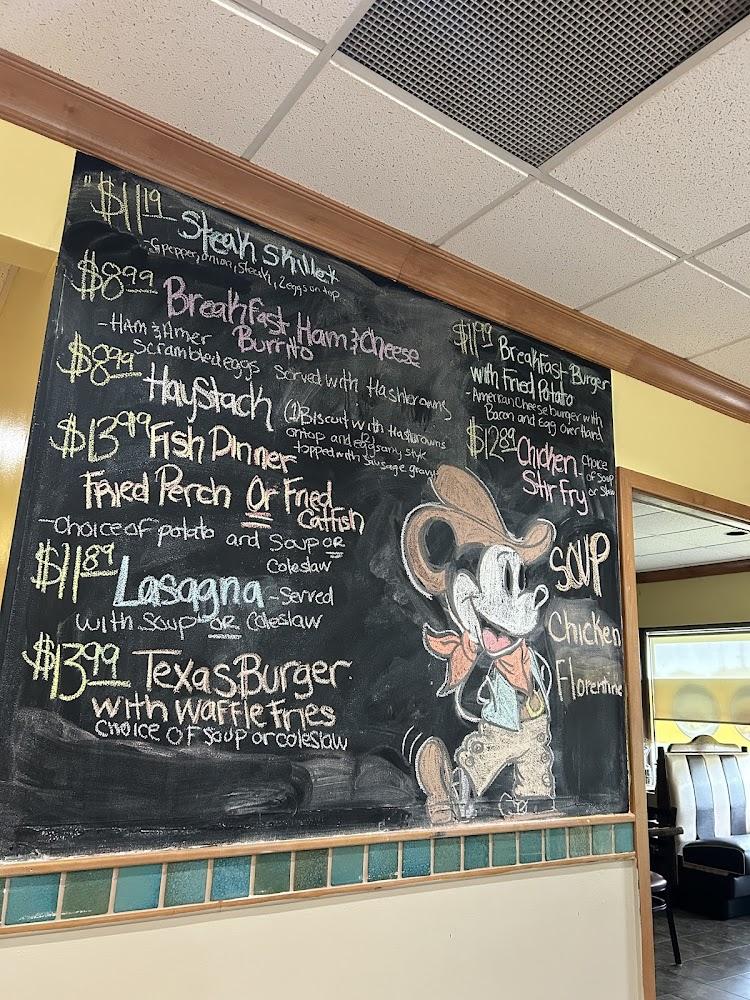 "$11.19 Steak Skillet
-G pepper, onion, steak, 2 eggs on top
$8.99 Breakfast Ham & Cheese
Burrito
-Ham & Amer
Scrambled eggs Served with Hashbrowns
$8.99 Haystack (1) Biscuit with Hashbrowns
ontop and (2) eggs any style
topped with Sausage gravy
$13.99 Fish Dinner
Fried Perch Or Fried
Catfish
-Choice of potato and Soup OR
Coleslaw
$11.89 Lasagna -Served
with Soup OR Coleslaw
$13.99 Texas Burger
with Waffle fries
choice of soup or coleslaw
$11.99 Breakfast Burger
with Fried Potato
-American Cheeseburger with
Bacon and Egg Over Hard
$12.89 Chicken
Stir Fry
choice
of soup
or Slaw
SOUP
Chicken
Florentine